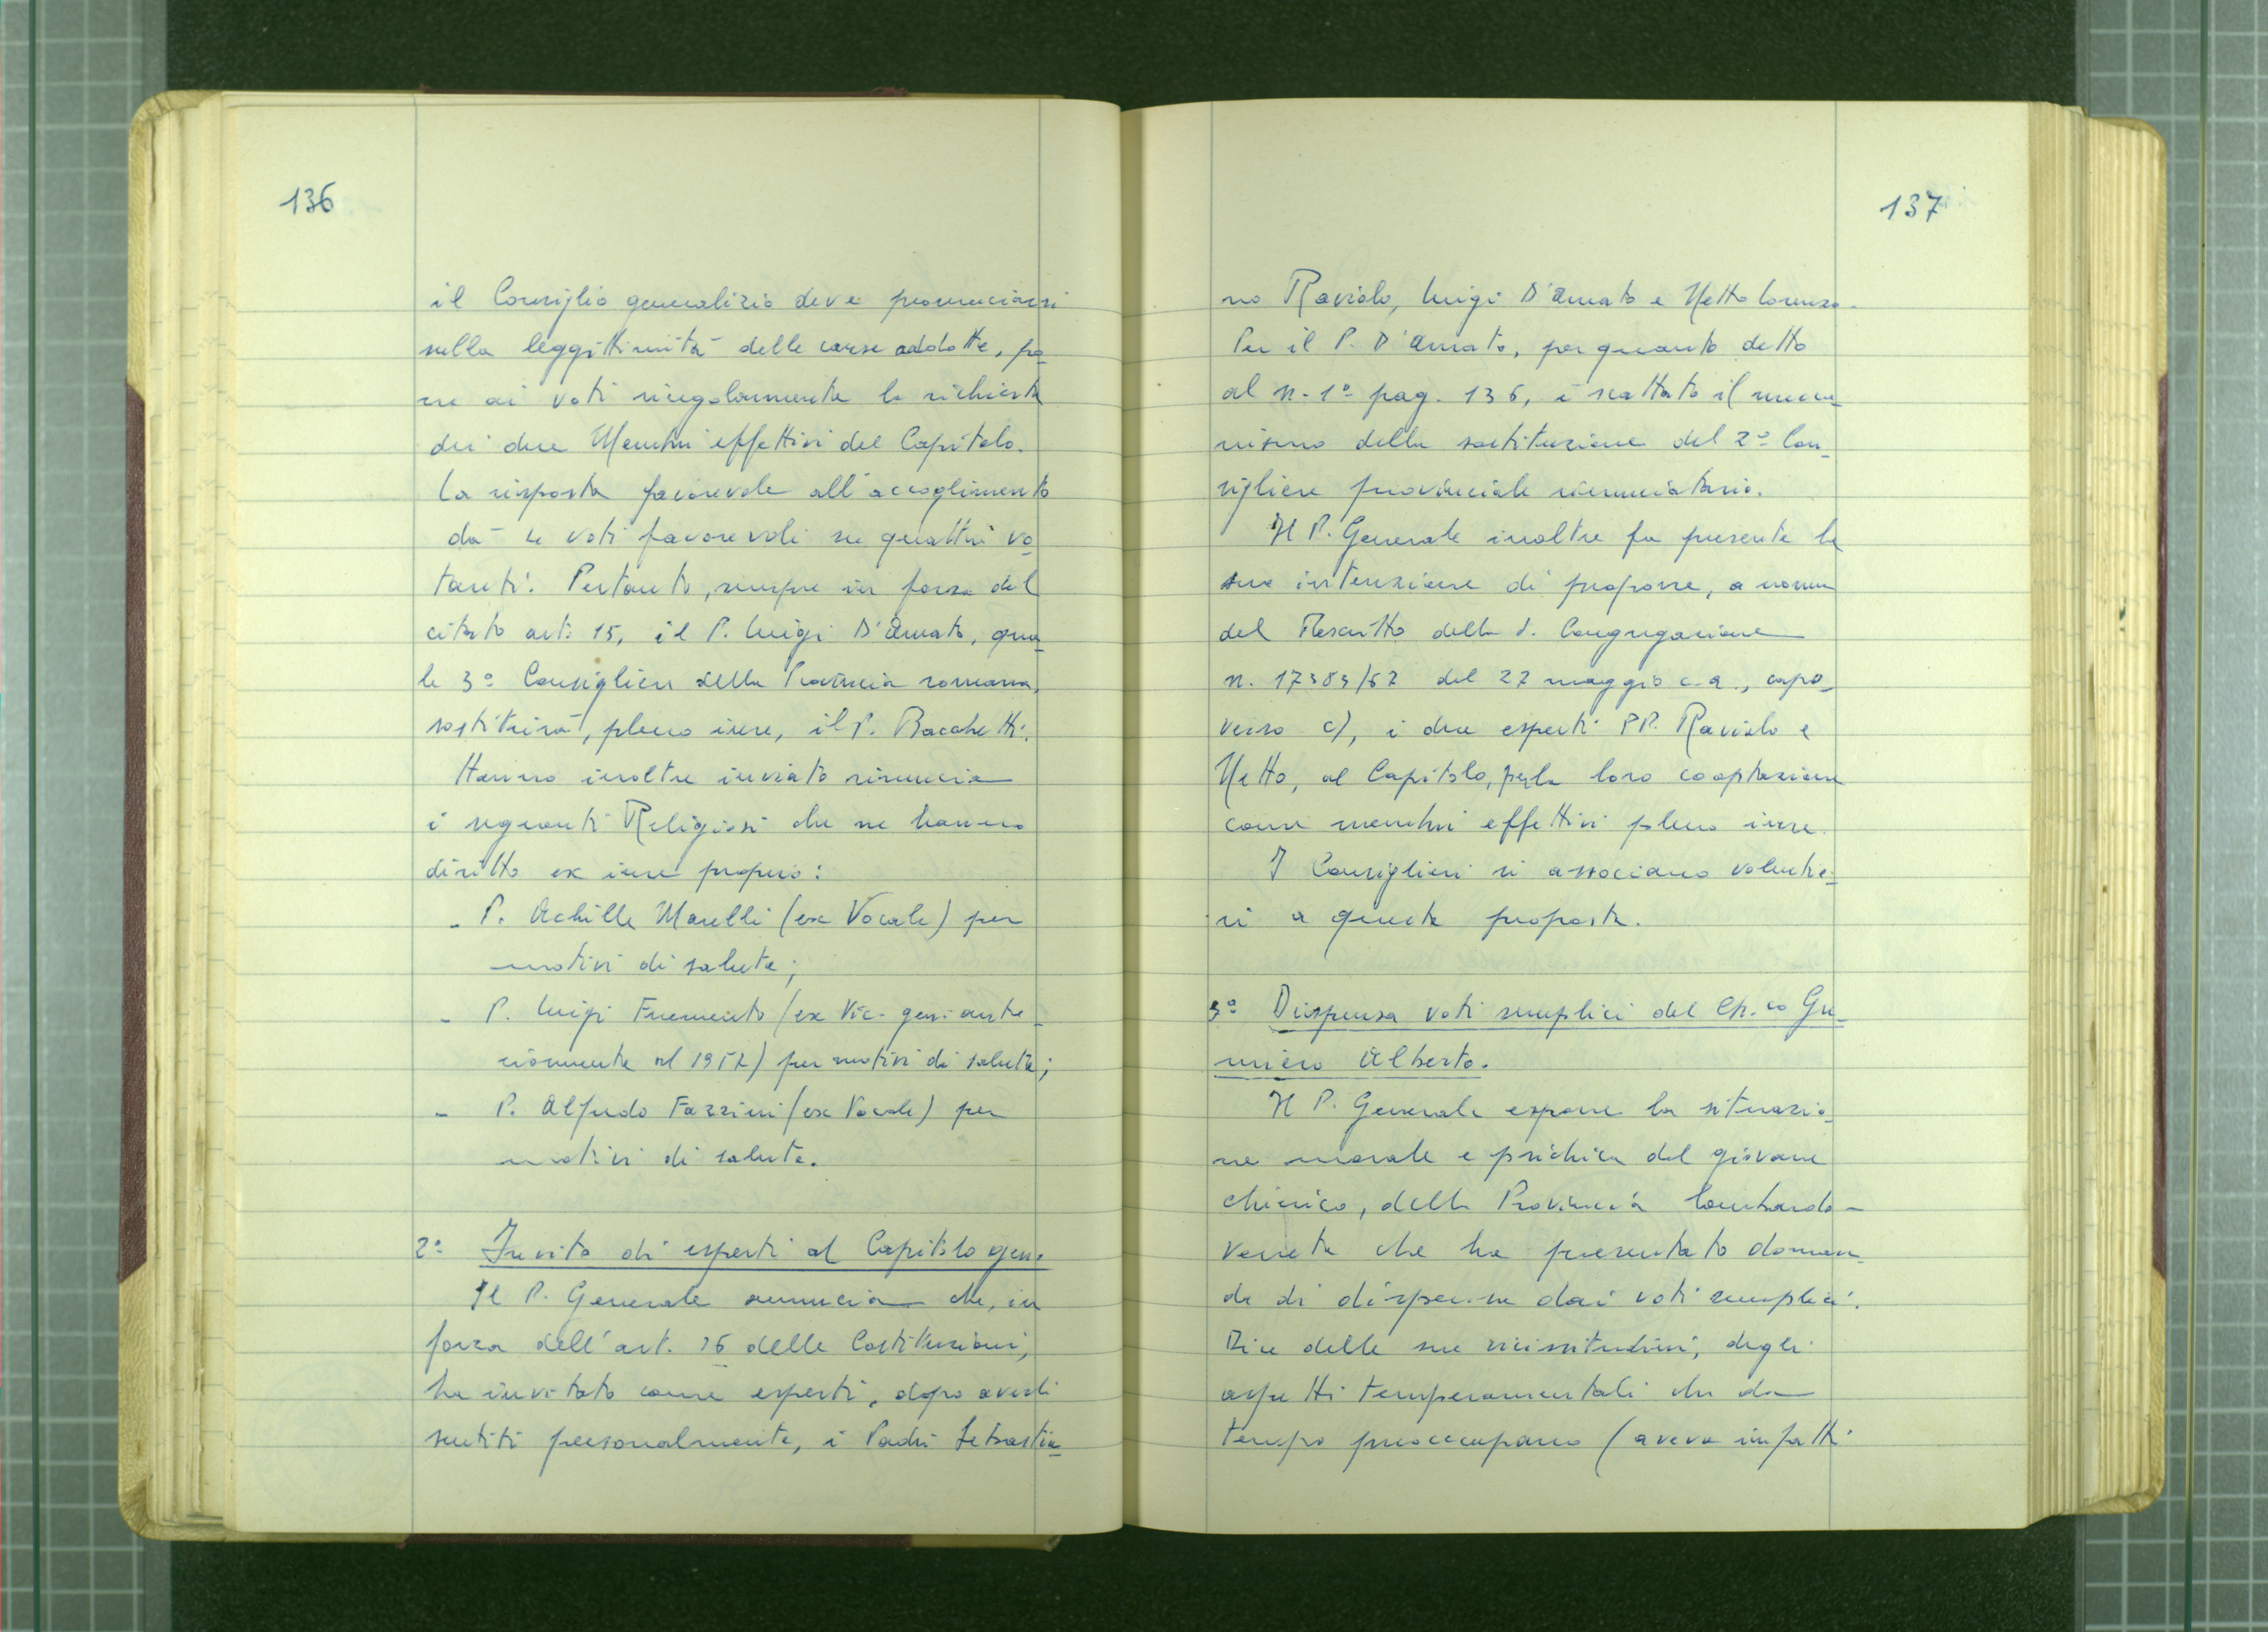 136
il Consiglio generalizio deve pronunciarsi
sulla leggittimità delle cause addotte, po-
ne ai voti singolarmente la richiesta
dei due Membri effettivi del Capitolo.
La risposta favorevole all'accoglimento
dà 4 voti favorevoli su quattro vo-
tanti. Pertanto, sempre in forza del
citato art. 15, il P. Luigi D'Amato, qua-
le 3º Consigliere della Provincia romana,
sostituirà, pleno iure, il P. Bacchetti.
Hanno inoltre inviato rinuncia
i seguenti Religiosi che ne hanno
diritto ex iure proprio:
- P. Achille Marelli (ex Vocale) per
motivi di salute;
- P. Luigi Frumento (ex Vic. gen. ante-
riormente al 1952) per motivi di salute;
- P. Alfredo Fazzini (ex Vocale) per
motivi di salute.
2º Invito di esperti al Capitolo gen.
Il P. Generale annuncia che, in
forza dell'art. 16 delle Costituzioni,
ha invitato come esperti, dopo averli
sentiti personalmente, i Padri Sebastia-
137
no Raviolo, Luigi D'Amato e Netto Lorenzo.
Per il P. D'Amato, per quanto detto
al n. 1º pag. 136, è scattato il mecca-
nismo della sostituzione del 2º Con-
sigliere provinciale rinunciatario.
Il P. Generale inoltre fa presente la
sua intenzione di proporre, a norma
del Rescritto della S. Congregazione
n. 17383/67 del 22 maggio c.a., capo-
verso c), i due esperti PP. Raviolo e
Netto, al Capitolo, per la loro cooptazione
come membri effettivi pleno iure.
I Consiglieri si associano volentie-
ri a questa proposta.
3º Dispensa voti semplici del Ch.co Gu-
miero Alberto.
Il P. Generale espone la situazio-
ne morale e psichica del giovane
chierico, della Provincia lombardo-
veneta che ha presentato doman-
da di dispensa dai voti semplici.
Dice delle sue vicissitudini, degli
aspetti temperamentali che da
tempo preoccupano (aveva infatti